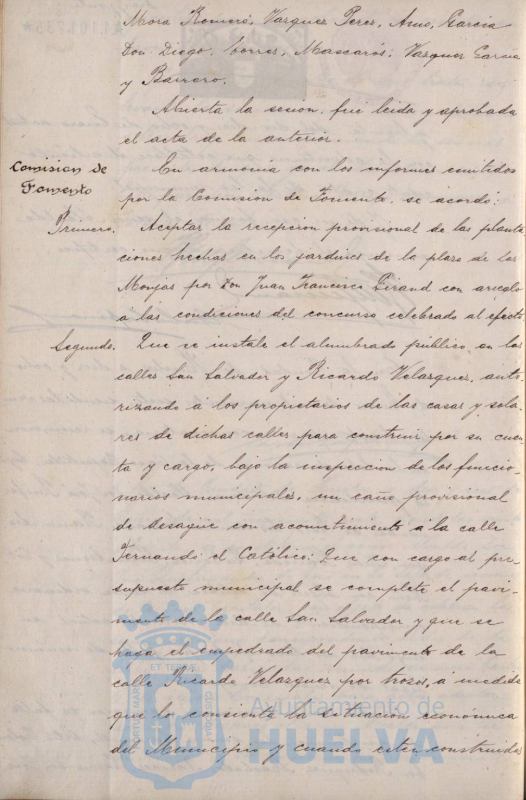 Mora Romero, Vazquez Perez, Amo, García
Don Diego, Torres, Mascarós, Vazquez García
y Barrero.
Abierta la sesion, fué leida y aprobada
el acta de la anterior.
Comision de
Fomento
En armonía con los informes emitidos
por la Comision de Fomento, se acordó:
Primero. Aceptar la recepcion provisional de las planta-
ciones hechas en los jardines de la plaza de las
Monjas por Don Juan Francisco Giraud con arreglo
á las condiciones del concurso celebrado al efecto
Segundo. Que se instale el alumbrado público en las
calles San Salvador y Ricardo Velazquez, auto-
rizando á los propietarios de las casas y sola-
res de dichas calles para construir por su cuen-
ta y cargo, bajo la inspeccion de los funcio-
narios municipales, un caño provisional
de desagüe con acometimiento á la calle
Fernando el Católico: Que con cargo al pre-
supuesto municipal se complete el pavi-
mento de la calle San Salvador y que se
haga el empedrado del pavimento de la
calle Ricardo Velazquez por trozos, á medida
que lo consienta la situacion económica
del Municipio y cuando esten construidas
Ayuntamiento de
HUELVA